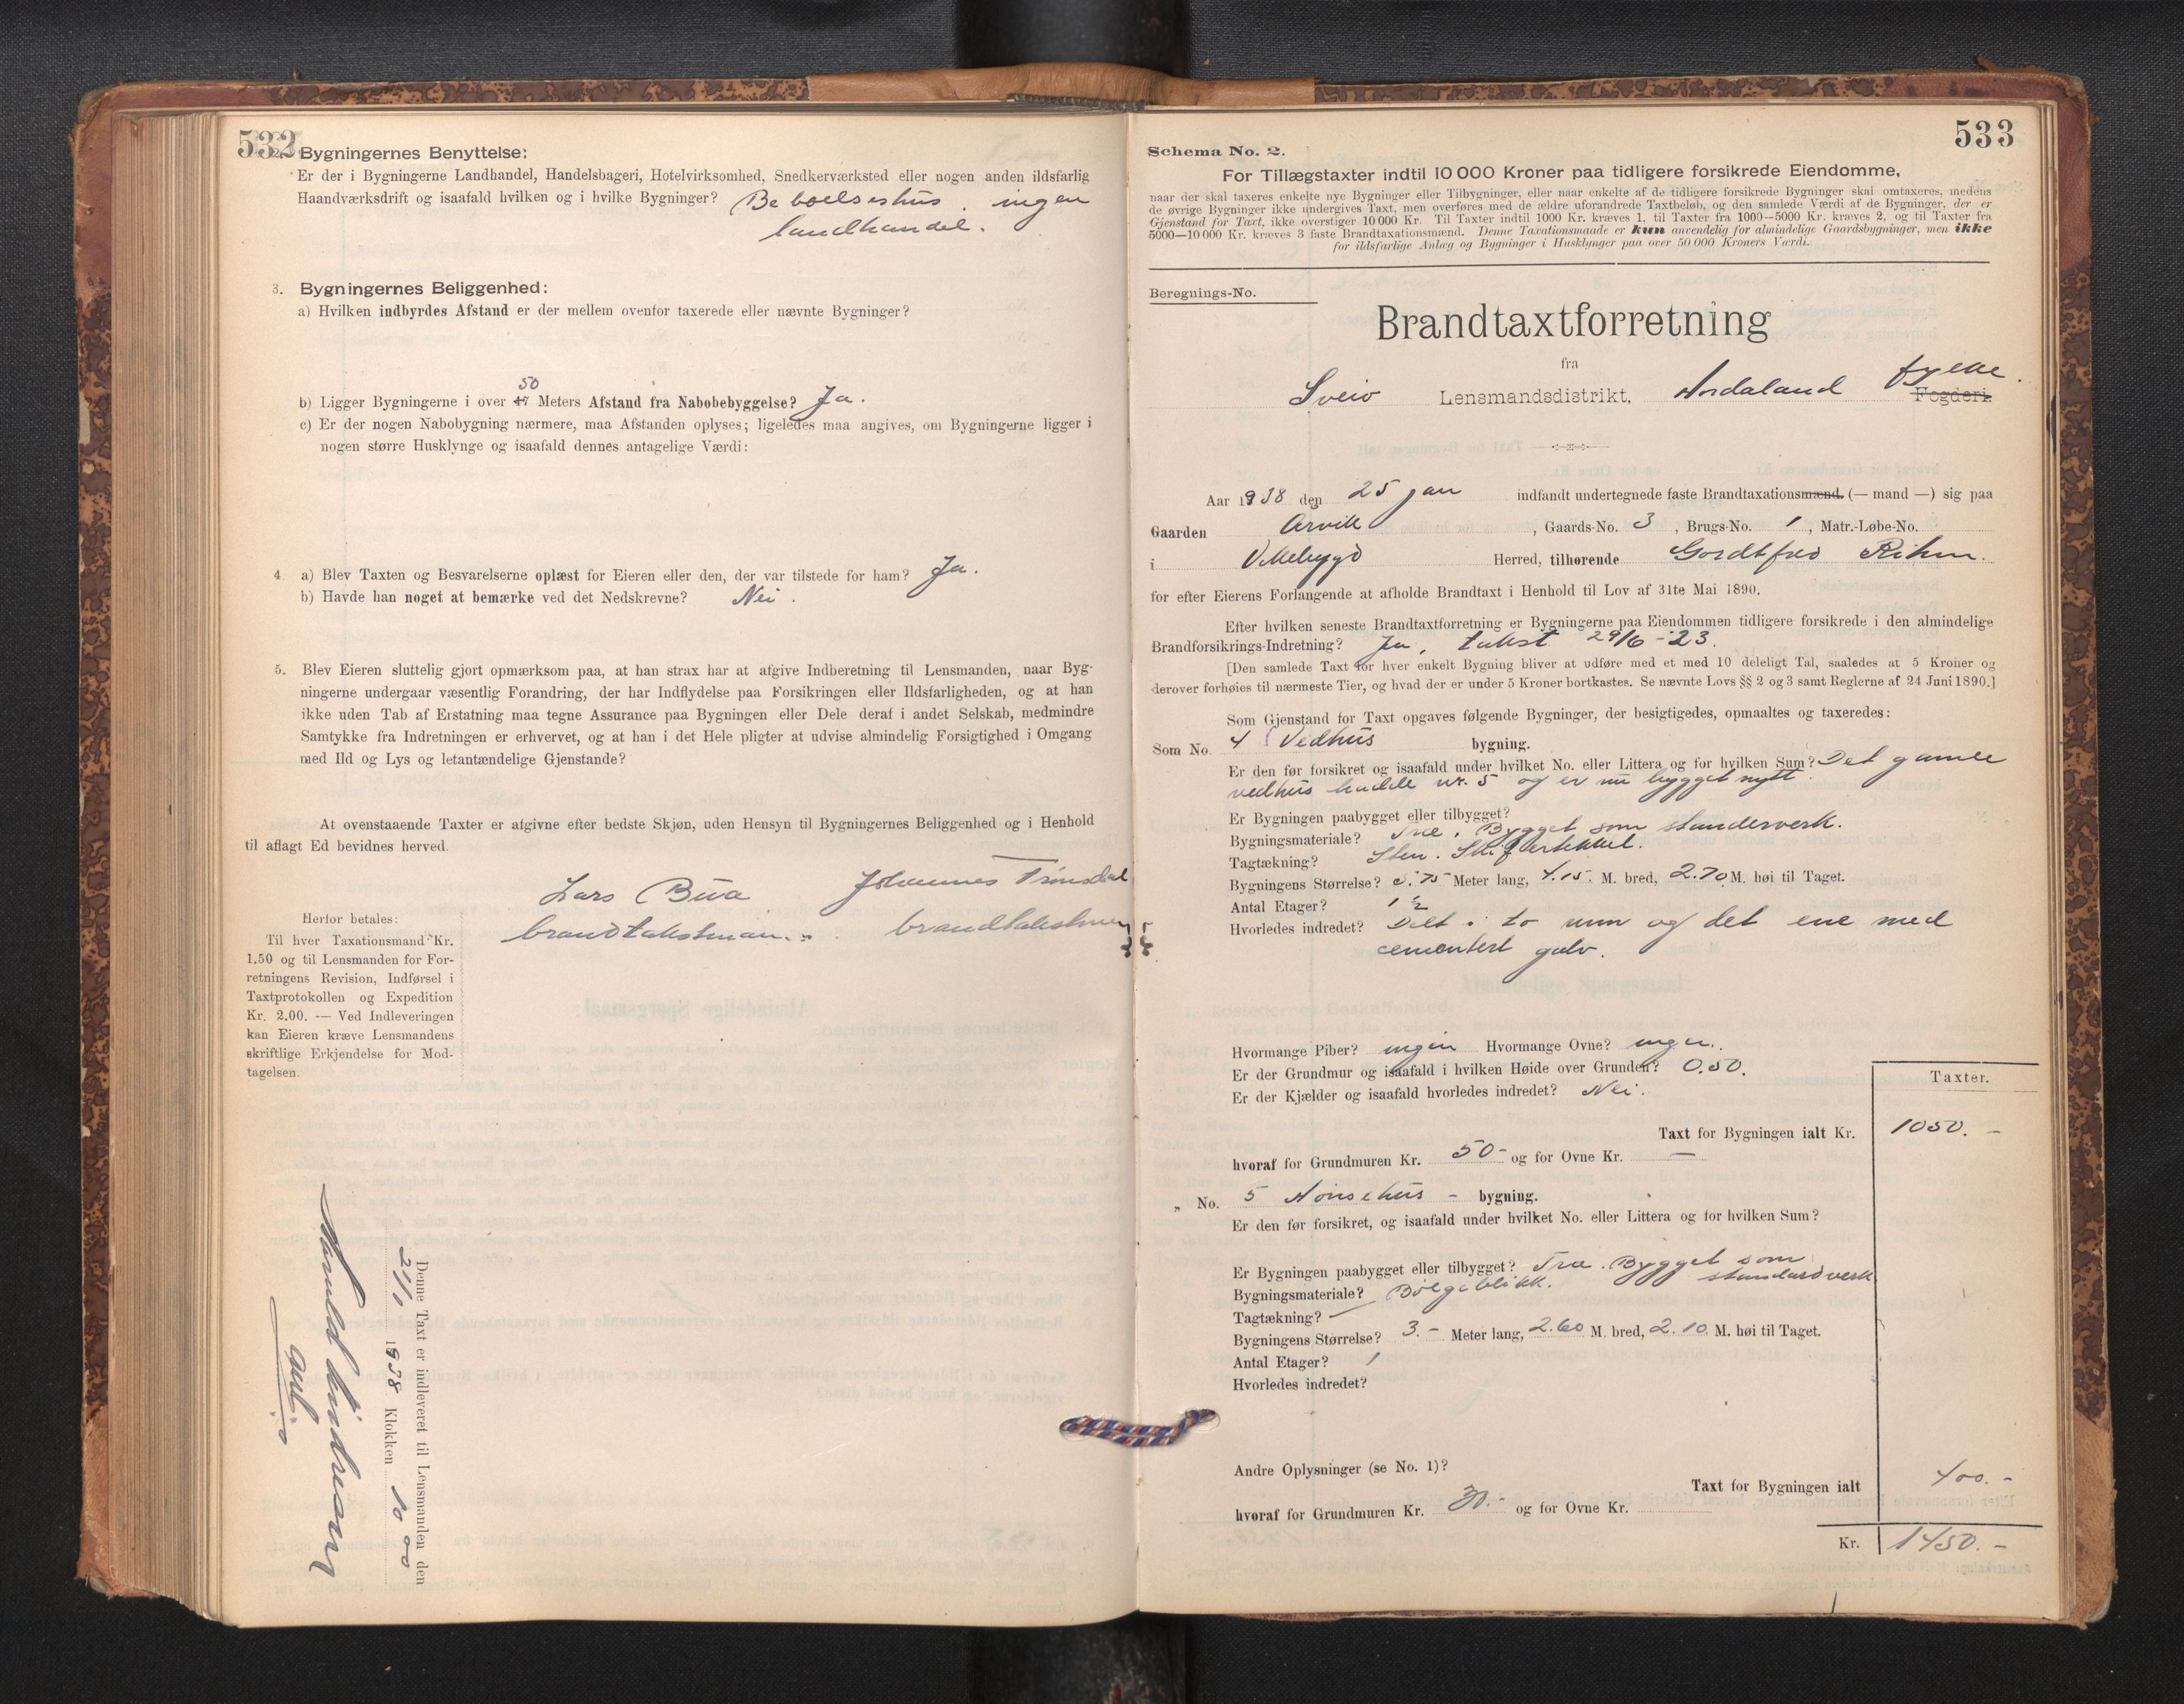 532
2. Bygningernes Benyttelse:
Er der i Bygningerne Landhandel, Handelsbageri, Hotelvirksomhed, Snedkerværksted eller nogen anden ildsfarlig
Haandværksdrift og isaafald hvilken og i hvilke Bygninger? Beboelseshus. ingen
landhandel.
3. Bygningernes Beliggenhed:
a) Hvilken indbyrdes Afstand er der mellem ovenfor taxerede eller nævnte Bygninger?
50
b) Ligger Bygningerne i over 47 Meters Afstand fra Nabobebyggelse? Ja.
c) Er der nogen Nabobygning nærmere, maa Afstanden oplyses; ligeledes maa angives, om Bygningerne ligger i
nogen større Husklynge og isaafald dennes antagelige Værdi:
4. a) Blev Taxten og Besvarelserne oplæst for Eieren eller den, der var tilstede for ham? Ja.
b) Havde han noget at bemærke ved det Nedskrevne? Nei.
5. Blev Eieren sluttelig gjort opmærksom paa, at han strax har at afgive Indberetning til Lensmanden, naar Byg-
ningerne undergaar væsentlig Forandring, der har Indflydelse paa Forsikringen eller Ildsfarligheden, og at han
ikke uden Tab af Erstatning maa tegne Assurance paa Bygningen eller Dele deraf i andet Selskab, medmindre
Samtykke fra Indretningen er erhvervet, og at han i det Hele pligter at udvise almindelig Forsigtighed i Omgang
med Ild og Lys og letantændelige Gjenstande?
At ovenstaaende Taxter er afgivne efter bedste Skjøn, uden Hensyn til Bygningernes Beliggenhed og i Henhold
til aflagt Ed bevidnes herved.
Lars Bua Johannes Trønsdal
brandtakstman brandtakstman
Herfor betales:
Til hver Taxationsmand Kr.
1.50 og til Lensmanden for For-
retningens Revision, Indførsel i
Taxtprotokollen og Expedition
Kr. 2.00. — Ved Indleveringen
kan Eieren kræve Lensmandens
skriftlige Erkjendelse for Mod-
tagelsen.
Denne Taxt er indleveret til Lensmanden den
21/1 1938 Klokken 10 00
533
Schema No. 2.
For Tillægstaxter indtil 10 000 Kroner paa tidligere forsikrede Eiendomme,
naar der skal taxeres enkelte nye Bygninger eller Tilbygninger, eller naar enkelte af de tidligere forsikrede Bygninger skal omtaxeres, medens
de øvrige Bygninger ikke undergives Taxt, men overføres med de ældre uforandrede Taxtbeløb, og den samlede Værdi af de Bygninger, der er
Gjenstand for Taxt, ikke overstiger 10 000 Kr. Til Taxter indtil 1000 Kr. kræves 1, til Taxter fra 1000—5000 Kr. kræves 2, og til Taxter fra
5000—10 000 Kr. kræves 3 faste Brandtaxationsmænd. Denne Taxationsmaade er kun anvendelig for almindelige Gaardsbygninger, men ikke
for ildsfarlige Anlæg og Bygninger i Husklynger paa over 50 000 Kroners Værdi.
Beregnings-No.
Brandtaxtforretning
fra
Sveio Lensmandsdistrikt, Hordaland fylke. Fogderi.
Aar 1938 den 25 jan indfandt undertegnede faste Brandtaxationsmænd. (— mand —) sig paa
Gaarden Ørvik, Gaards-No. 3, Brugs-No. 1, Matr.-Løbe-No.
i Vikebygd Herred, tilhørende
for efter Eierens Forlangende at afholde Brandtaxt i Henhold til Lov af 31te Mai 1890.
Efter hvilken seneste Brandtaxtforretning er Bygningerne paa Eiendommen tidligere forsikrede i den almindelige
Brandforsikrings-Indretning? Ja, takst 29/6 - 23.
[Den samlede Taxt for hver enkelt Bygning bliver at udføre med et med 10 deleligt Tal, saaledes at 5 Kroner og
derover forhøies til nærmeste Tier, og hvad der er under 5 Kroner bortkastes. Se nævnte Lovs §§ 2 og 3 samt Reglerne af 24 Juni 1890.]
Som Gjenstand for Taxt opgaves følgende Bygninger, der besigtigedes, opmaaltes og taxeredes:
Som No. 4 Vedhus bygning.
Er den før forsikret og isaafald under hvilket No. eller Littera og for hvilken Sum? Det gamle
vedhus hadde nr. 5 og er nu bygget nytt.
Er Bygningen paabygget eller tilbygget?
Bygningsmateriale? Træ. Bygget som standerverk.
Tagtækning? Sten.
Bygningens Størrelse? 5.75 Meter lang, 4.15. M. bred, 2.70 M. høi til Taget.
Antal Etager? 1 ½
Hvorledes indredet? Delt i to rum og det ene med
cementert gulv.
Hvormange Piber? ingen Hvormange Ovne? ingen.
Er der Grundmur og isaafald i hvilken Høide over Grunden? 0.50.
Er der Kjælder og isaafald hvorledes indredet? Nei.
Taxter.
Taxt for Bygningen ialt Kr. 1050. -
hvoraf for Grundmuren Kr. 50 - og for Ovne Kr. —
„ No. 5 Hønsehus - bygning.
Er den før forsikret, og isaafald under hvilket No. eller Littera og for hvilken Sum?
Er Bygningen paabygget eller tilbygget? Træ. Bygget som
standardverk
Bygningsmateriale? Bølgeblikk.
Tagtækning? —
Bygningens Størrelse? 3. - Meter lang, 2.60 M. bred, 2.10 M. høi til Taget.
Antal Etager? 1
Hvorledes indredet?
Andre Oplysninger (se No. 1)?
Taxt for Bygningen ialt 400. -
hvoraf for Grundmuren Kr. 30. - og for Ovne Kr.
Kr. 1450. -